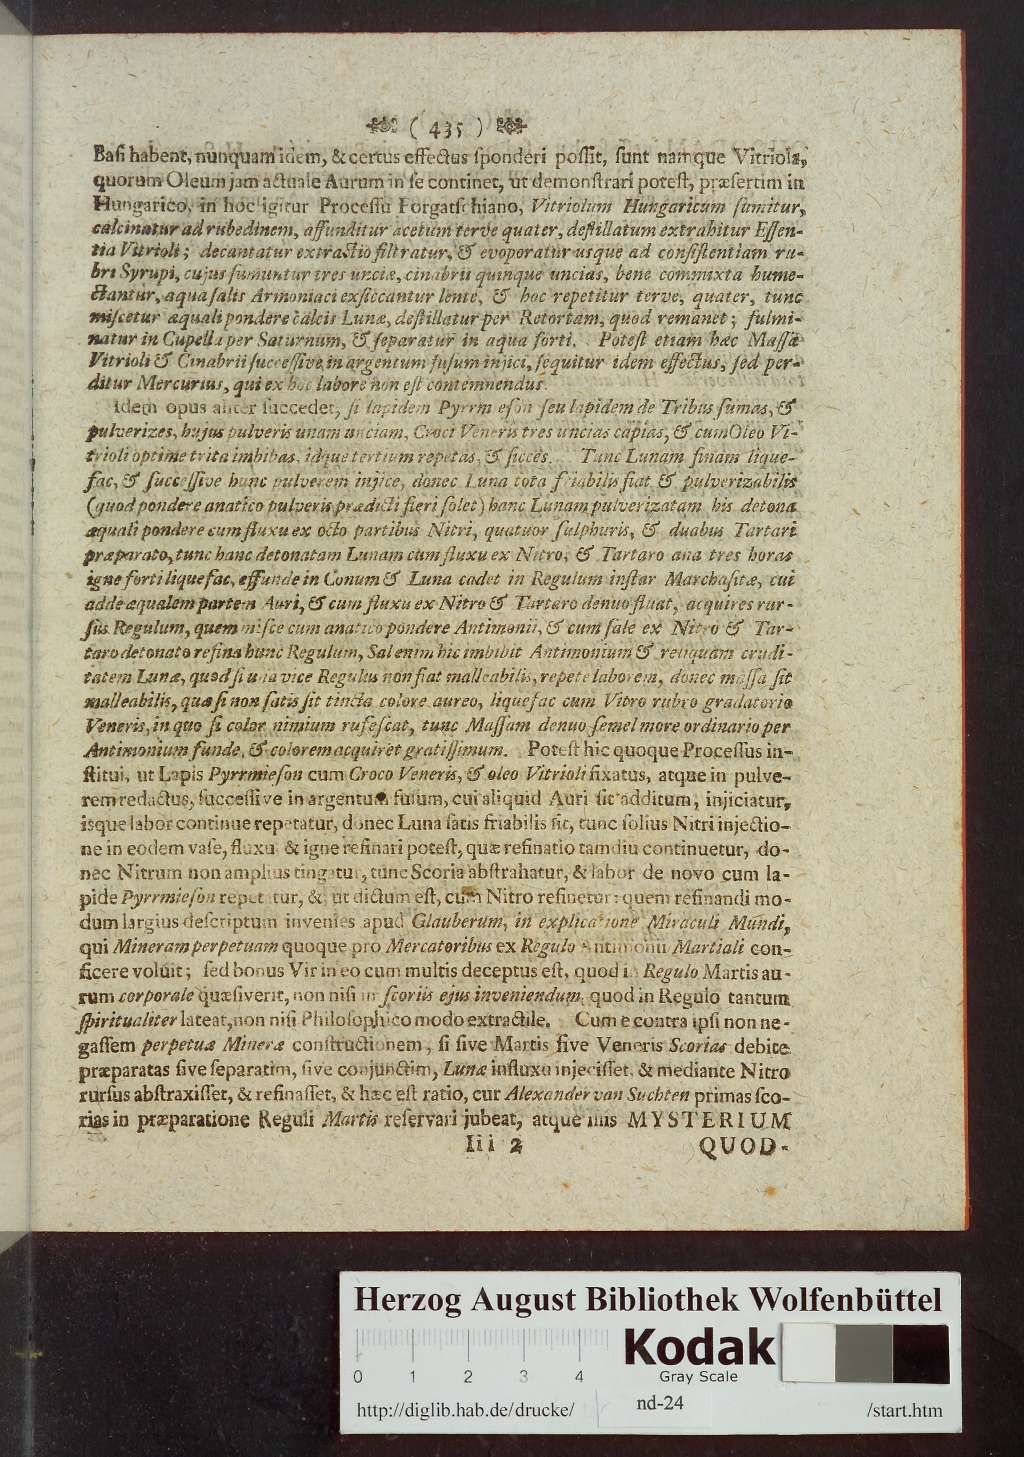 ( 435 )
Baſi habent, nunquam idem, & certus effectus ſponderi poſſit, ſunt namque Vitriola,
quorum Oleum jam actuale Aurum in ſe continet, ut demonſtrari poteſt, præſertim in
Hungarico, in hoc igitur Proceſſu Forgatſchiano, Vitriolum Hungaricum ſumitur,
calcinatur ad rubedinem, affunditur acetum terve quater, deſtillatum extrahitur Eſſen-
tia Vitrioli; decantatur extractio filtratur, & evoporatur usque ad conſiſtentiam ru-
bri Syrupi, cujus ſumuntur tres unciæ, cinabrii quinque uncias, bene commixta hume-
ctantur, aqua ſalis Armoniaci exſiccantur lente, & hoc repetitur terve, quater, tunc
miſcetur æquali pondere calcis Lunæ, deſtillatur per Retortam, quod remanet; fulmi-
natur in Cupella per Saturnum, & ſeparatur in aqua forti. Poteſt etiam hæc Maſſa
Vitrioli & Cinabrii ſucceſſive in argentum fuſum injici, ſequitur idem effectus, ſed per-
ditur Mercurius, qui ex hoc labore non eſt contemnendus.
Idem opus aliter ſuccedet, ſi lapidem Pyrrm eſon ſeu lapidem de Tribus ſumas, &
pulverizes, hujus pulveris unam unciam, Croci Veneris tres uncias capias, & cum Oleo Vi-
trioli optime trita imbibas, idque tertium repetas, & ſicces. Tunc Lunam finam lique-
fac, & ſucceſſive hunc pulverem injice, donec Luna tota friabilis fiat & pulverizabilis
(quod pondere anatico pulveris prædicti fieri ſolet) hanc Lunam pulverizatam his detona
æquali pondere cum fluxu ex octo partibus Nitri, quatuor ſulphuris, & duabus Tartari
præparato, tunc hanc detonatam Lunam cum fluxu ex Nitro, & Tartaro ana tres horas
igne forti liquefac, effunde in Conum & Luna cadet in Regulum inſtar Marchaſitæ, cui
adde æqualem partem Auri, & cum fluxu ex Nitro & Tartaro denuo fluat, acquires rur-
ſus Regulum, quem miſce cum anatico pondere Antimonii, & cum ſale ex Nitro & Tar-
taro detonato refina hunc Regulum, Sal enim hic imbibit Antimonium & reliquam crudi-
tatem Lunæ, quod ſi una vice Regulus non fiat malleabilis, repete laborem, donec maſſa ſit
malleabilis, quæ ſi non ſatis ſit tincta colore aureo, liquefac cum Vitro rubro gradatorio
Veneris, in quo ſi color nimium rufeſcat, tunc Maſſam denuo ſemel more ordinario per
Antimonium funde, & colorem acquiret gratiſſimum. Poteſt hic quoque Proceſſus in-
ſtitui, ut Lapis Pyrrmieſon cum Croco Veneris, & oleo Vitrioli fixatus, atque in pulve-
rem redactus, ſucceſſive in argentum fuſum, cui aliquid Auri ſit additum, injiciatur,
isque labor continue repetatur, donec Luna ſatis friabilis ſit, tunc ſolius Nitri injectio-
ne in eodem vaſe, fluxu & igne refinari poteſt, quæ refinatio tamdiu continuetur, do-
nec Nitrum non amplius tingatur, tunc Scoria abſtrahatur, & labor de novo cum la-
pide Pyrrmieſon repetatur, & ut dictum eſt, cum Nitro refinetur: quem refinandi mo-
dum largius deſcriptum invenies apud Glauberum, in explicatione Miraculi Mundi,
qui Mineram perpetuam quoque pro Mercatoribus ex Regulo Antimonii Martiali con-
ficere voluit; ſed bonus Vir in eo cum multis deceptus eſt, quod in Regulo Martis au-
rum corporale quæſiverit, non niſi in ſcoriis ejus inveniendum, quod in Regulo tantum
ſpiritualiter lateat, non niſi Philoſophico modo extractile. Cum e contra ipſi non ne-
gaſſem perpetuæ Mineræ conſtructionem, ſi ſive Martis ſive Veneris Scorias debite
præparatas ſive ſeparatim, ſive conjunctim, Lunæ influxu injeciſſet, & mediante Nitro
rurſus abſtraxiſſet, & refinaſſet, & hæc eſt ratio, cur Alexander van Suchten primas ſco-
rias in præparatione Reguli Martis reſervari jubeat, atque illis MYSTERIUM
Iii 2 QUOD-
Herzog August Bibliothek Wolfenbüttel
Kodak
Gray Scale
0 1 2 3 4
http://diglib.hab.de/drucke/ nd-24 /start.htm